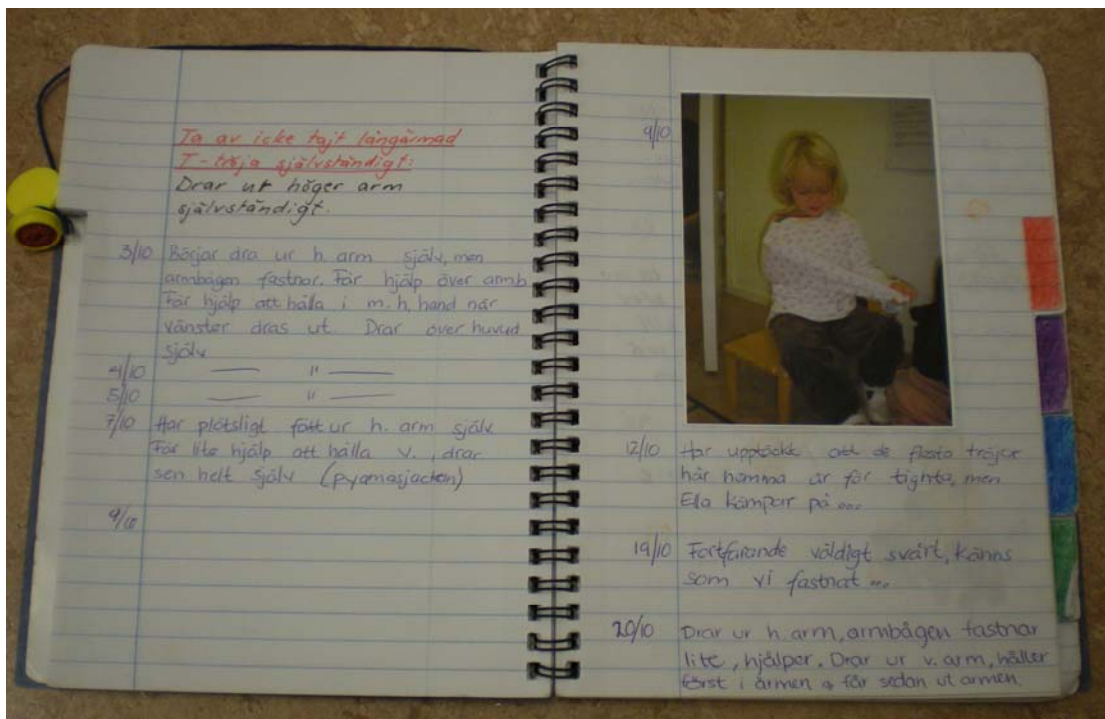 Ta av icke tajt långärmad
T-tröja självständigt:
Drar ur höger arm
självständigt.
3/10 Börjar dra ur h. arm själv, men
armbågen fastnar. Får hjälp över armb.
Får hjälp att hålla i m. h. hand när
vänster dras ut. Drar över huvud
själv
4/10 — " —
5/10 — " —
7/10 Har plötsligt fått ur h. arm själv
Får lite hjälp att hålla v., drar
sen helt själv (pyamasjackan)
9/10
9/10
12/10 Har upptäckt att de flesta tröjor
här hemma är för tighta, men
Ella kämpar på ...
19/10 Fortfarande väldigt svårt, känns
som vi fastnat ...
20/10 Drar ur h. arm, armbågen fastnar
lite, hjälper. Drar ur v. arm, håller
först i ärmen & får sedan ut armen.